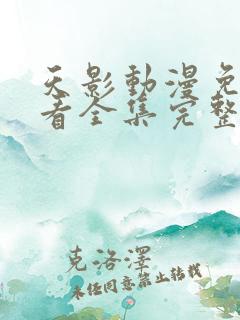 天影動漫免
看全集完整
克洛澤
未经同意禁止转载